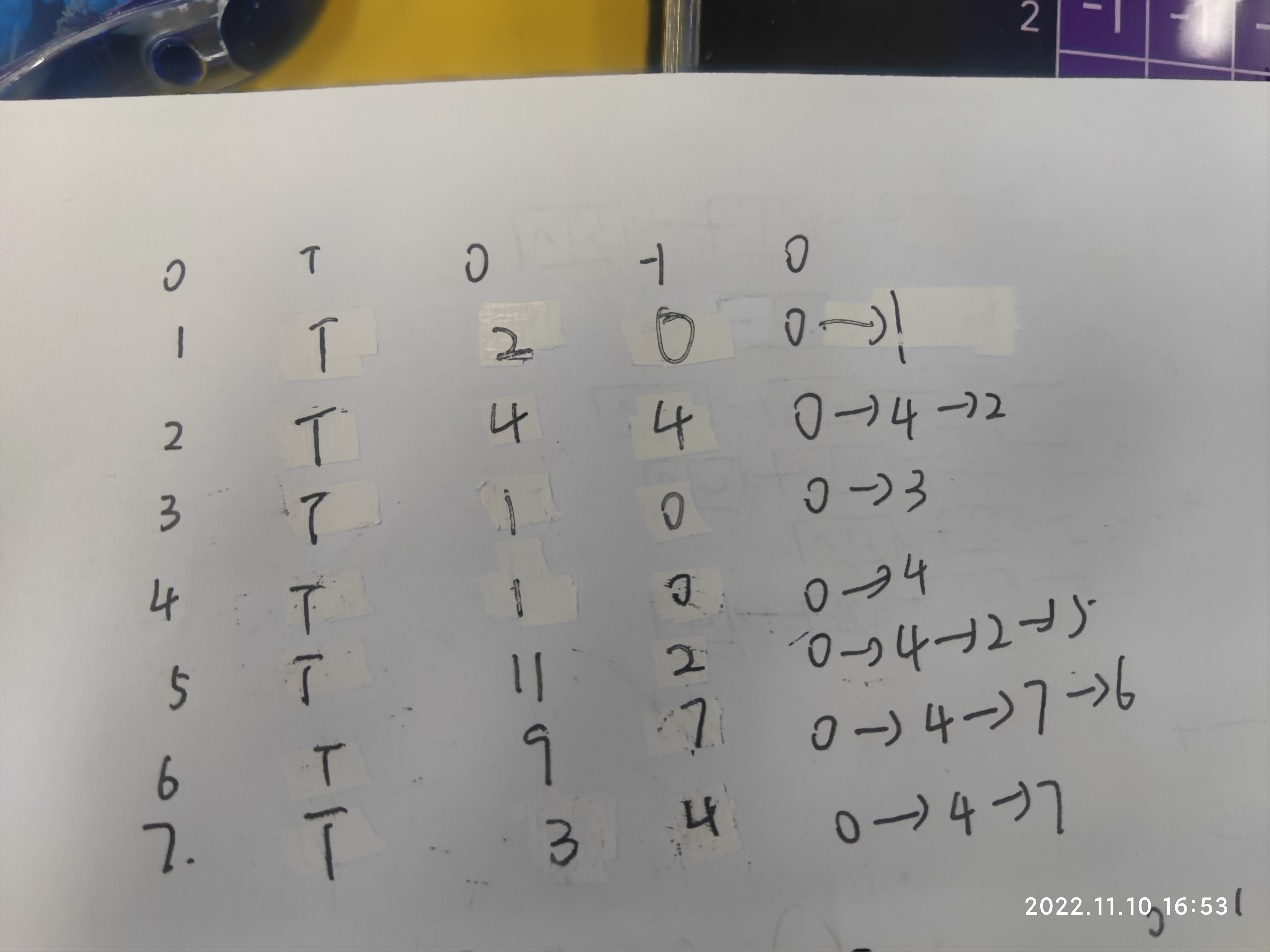 2 -1 -1
0 T 0 -1 0
1 T 2 0 0→1
2 T 4 4 0→4→2
3 T 1 0 0→3
4 T 1 0 0→4
5 T 11 2 0→4→2→5
6 T 9 7 0→4→7→6
7. T 3 4 0→4→7
2022.11.10 16:53